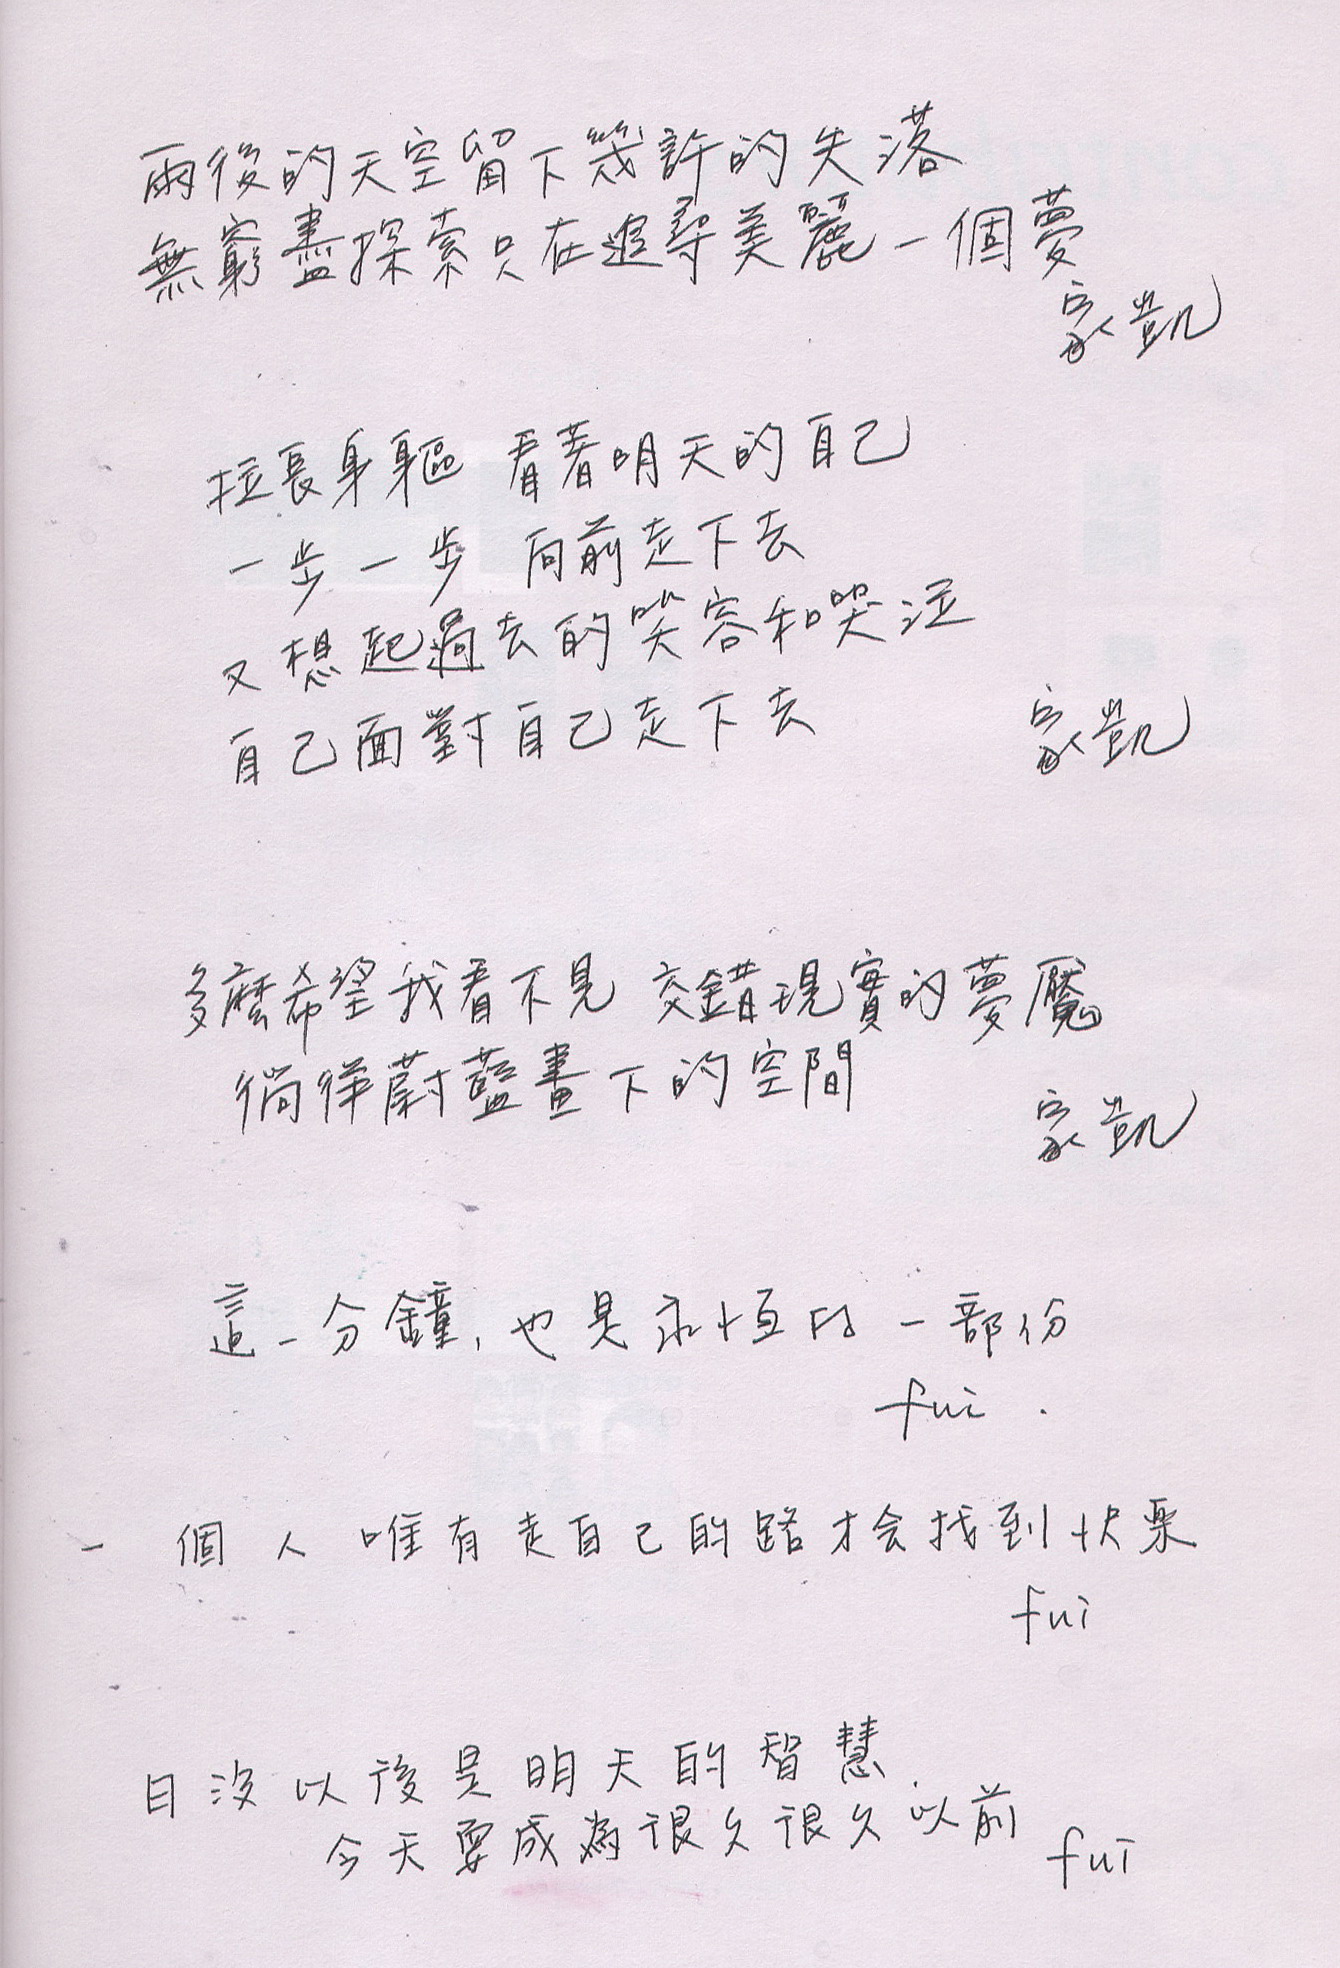 雨後的天空留下幾許的失落
無窮盡探索只在追尋美麗一個夢
家凱
拉長身軀 看著明天的自己
一步一步 向前走下去
又想起過去的笑容和哭泣
自己面對自己走下去
家凱
多麼希望我看不見 交錯現實的夢魘
徜徉蔚藍畫下的空間
家凱
這一分鐘,也是永恆的一部份
fui.
一個人唯有走自己的路才会找到快樂
fui
日沒以後是明天的智慧.
今天要成為很久很久以前
fui